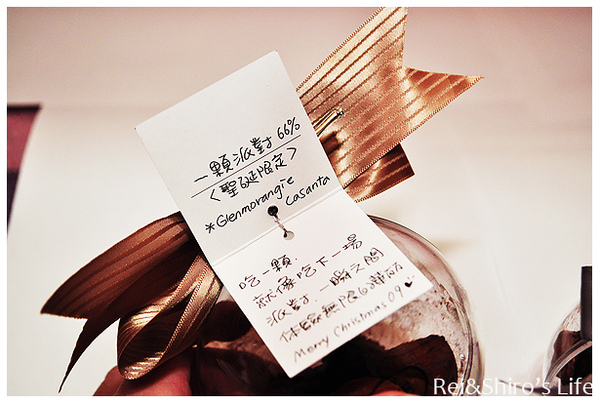 一顆派對 66%
<聖誕限定>
*Glenmorangie
Casanta
吃一顆.
就像吃下一場
派對.一瞬之間
体驗無限的華麗
Merry Christmas 09 ♥
Rei&Shiro's Life